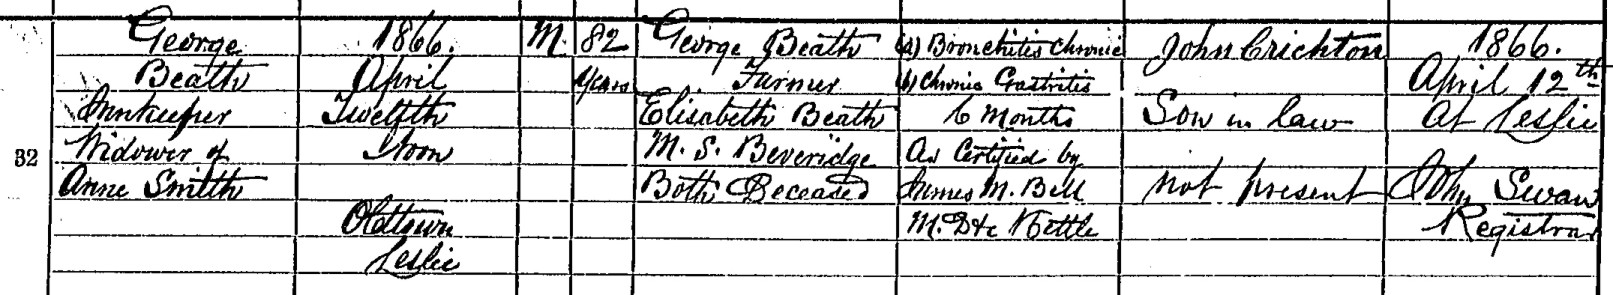 32
George
Beath
Innkeeper
Widower of
Anne Smitth
1866.
April
Twelfth
Noon
Oldtown
Leslie
M.
82
years
George Beath
Farmer
Elisabeth Beath
M.S. Beveridge
Both Deceased
(a) Bronchitis Chronic
(b) Chronic Gastritis
6 Months
As Certified by
James M. Bell
M.D &c Kettle
John Crichton
Son in law
not present
1866.
April 12th
At Leslie
John Swan
Registrar